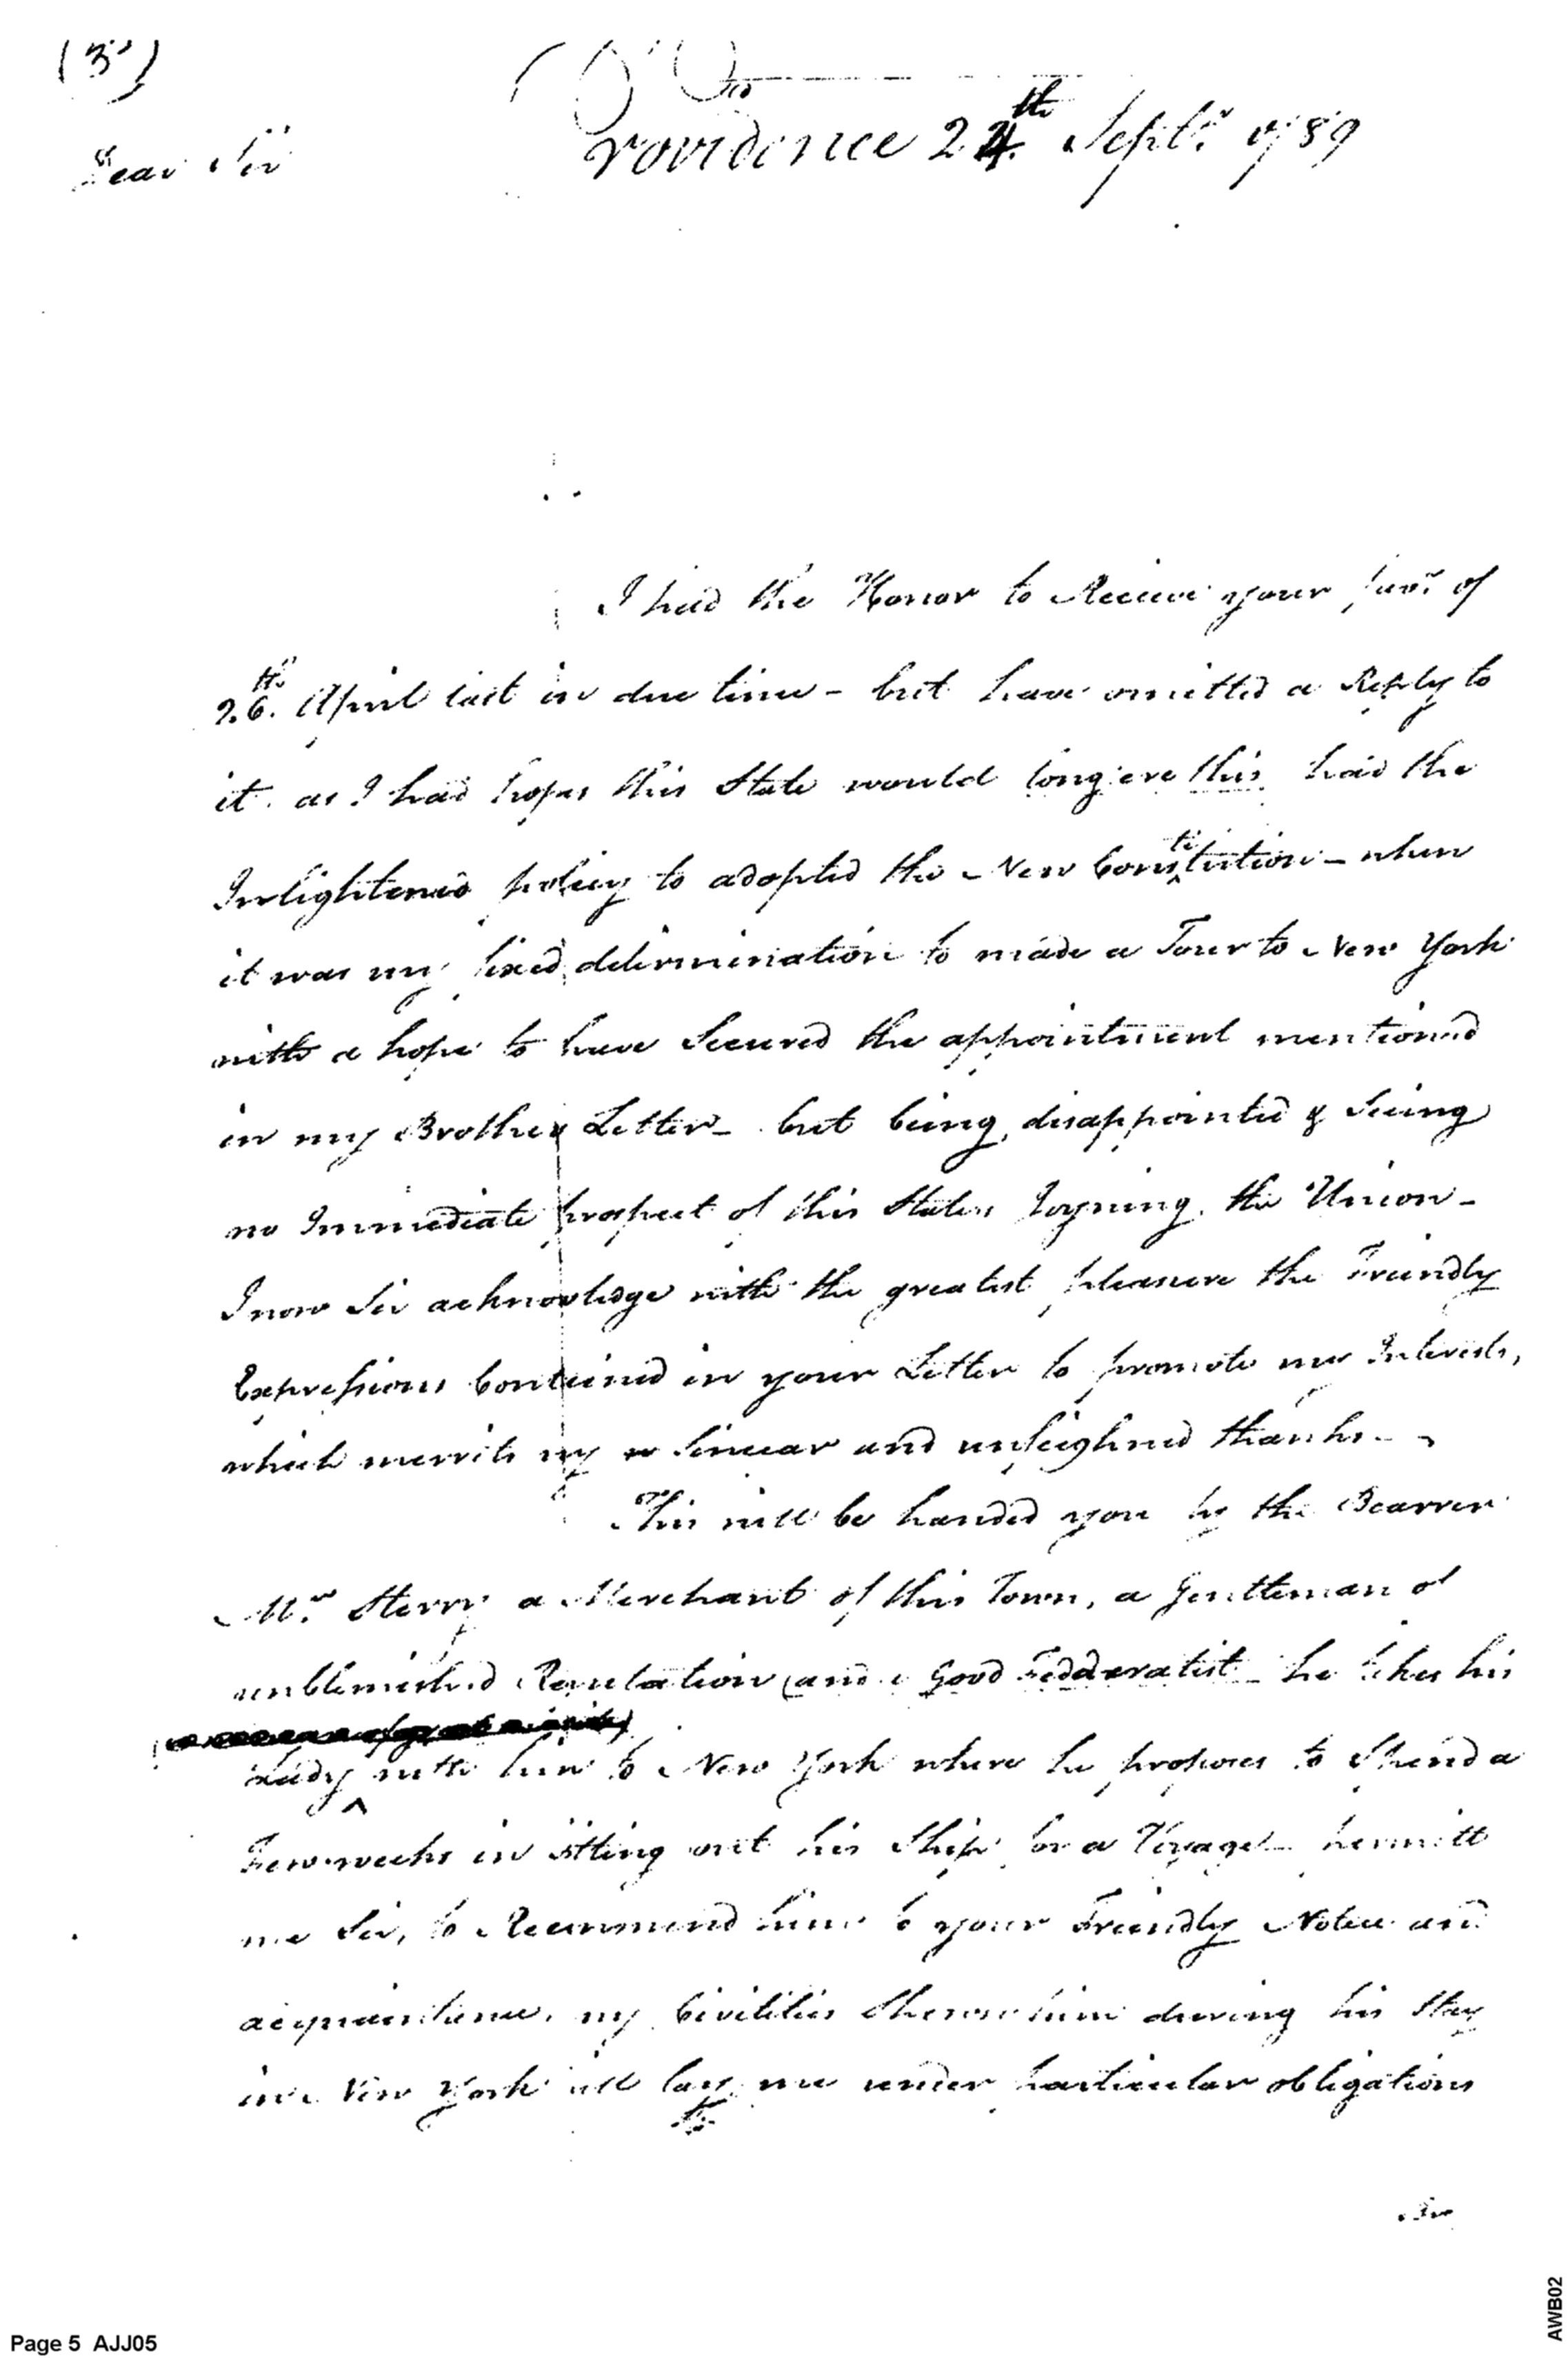 (3)
Providence 24th Septr. 1789
Dear Sir
I had the Honor to Receive your favr. of
26th. April last in due time - but have omitted a Reply to
it. as I had hopes this State would long ere this had the
Inlightened policy to adopted the New Constitution - when
it was my fixed determination to made a Tour to New York
with a hope to have Secured the appointment mentioned
in my Brothers Letter - but being disappointed & Seeing
no Immediate prospect of this States Joyning the Union -
I now Sir acknowledge with the greatest pleasure the Friendly
Expressions Contained in your Letter to promote my Interests,
which merrits my sincear and unfeighned thanks -
This will be handed you by the Bearrer
Mr. Sterry a Merchant of this Town, a Gentleman of
unblemished Reputation and a Good Fedderalist - he takes his
Lady with him to New York where he proposes to Spend a
Few weeks in fitting out his Ship for a Voyage - permitt
me Sir, to Recommend him to your Friendly Notice and
acquaintance. my Civilities Shewn him during his Stay
in New York will lay me under particular obligations
to
Page 5 AJJ05
AWB02